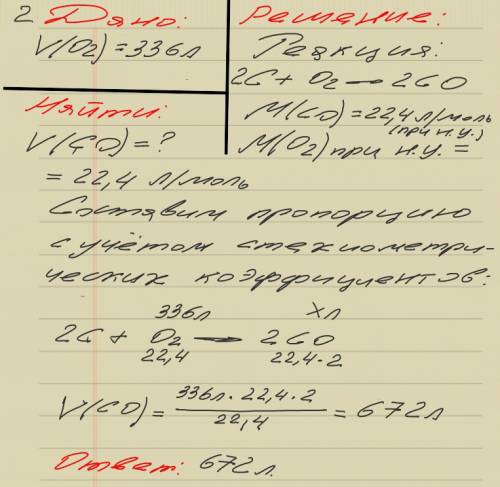 2 Дано:
V(O₂) = 336 л
Найти:
V(CO) = ?
Решение:
Реакция:
2C + O₂ → 2CO
M(CO) = 22,4 л/моль
(при н.у.)
M(O₂) при н.у. =
= 22,4 л/моль
Составим пропорцию
с учётом стехиометри-
ческих коэффициентов:
336л хл
2C + O₂ → 2CO
22,4 22,4·2
V(CO) = 336л · 22,4 · 2 / 22,4 = 672л
Ответ: 672 л.